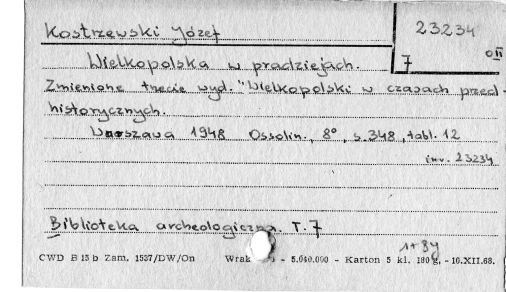 Kostrzewski Józef
23234
7 OII
Wielkopolska w pradziejach.
Zmienione trzecie wyd. "Wielkopolski w czasach przed-
historycznych.
Warszawa 1948 Ossolin., 8°, s.348, tabl. 12
inv. 23234
Biblioteka archeologiczna. T. 7
CWD B 15 b Zam. 1537/DW/On Wrak - 5.040.000 - Karton 5 kl. 180 g. -10.XII.68.